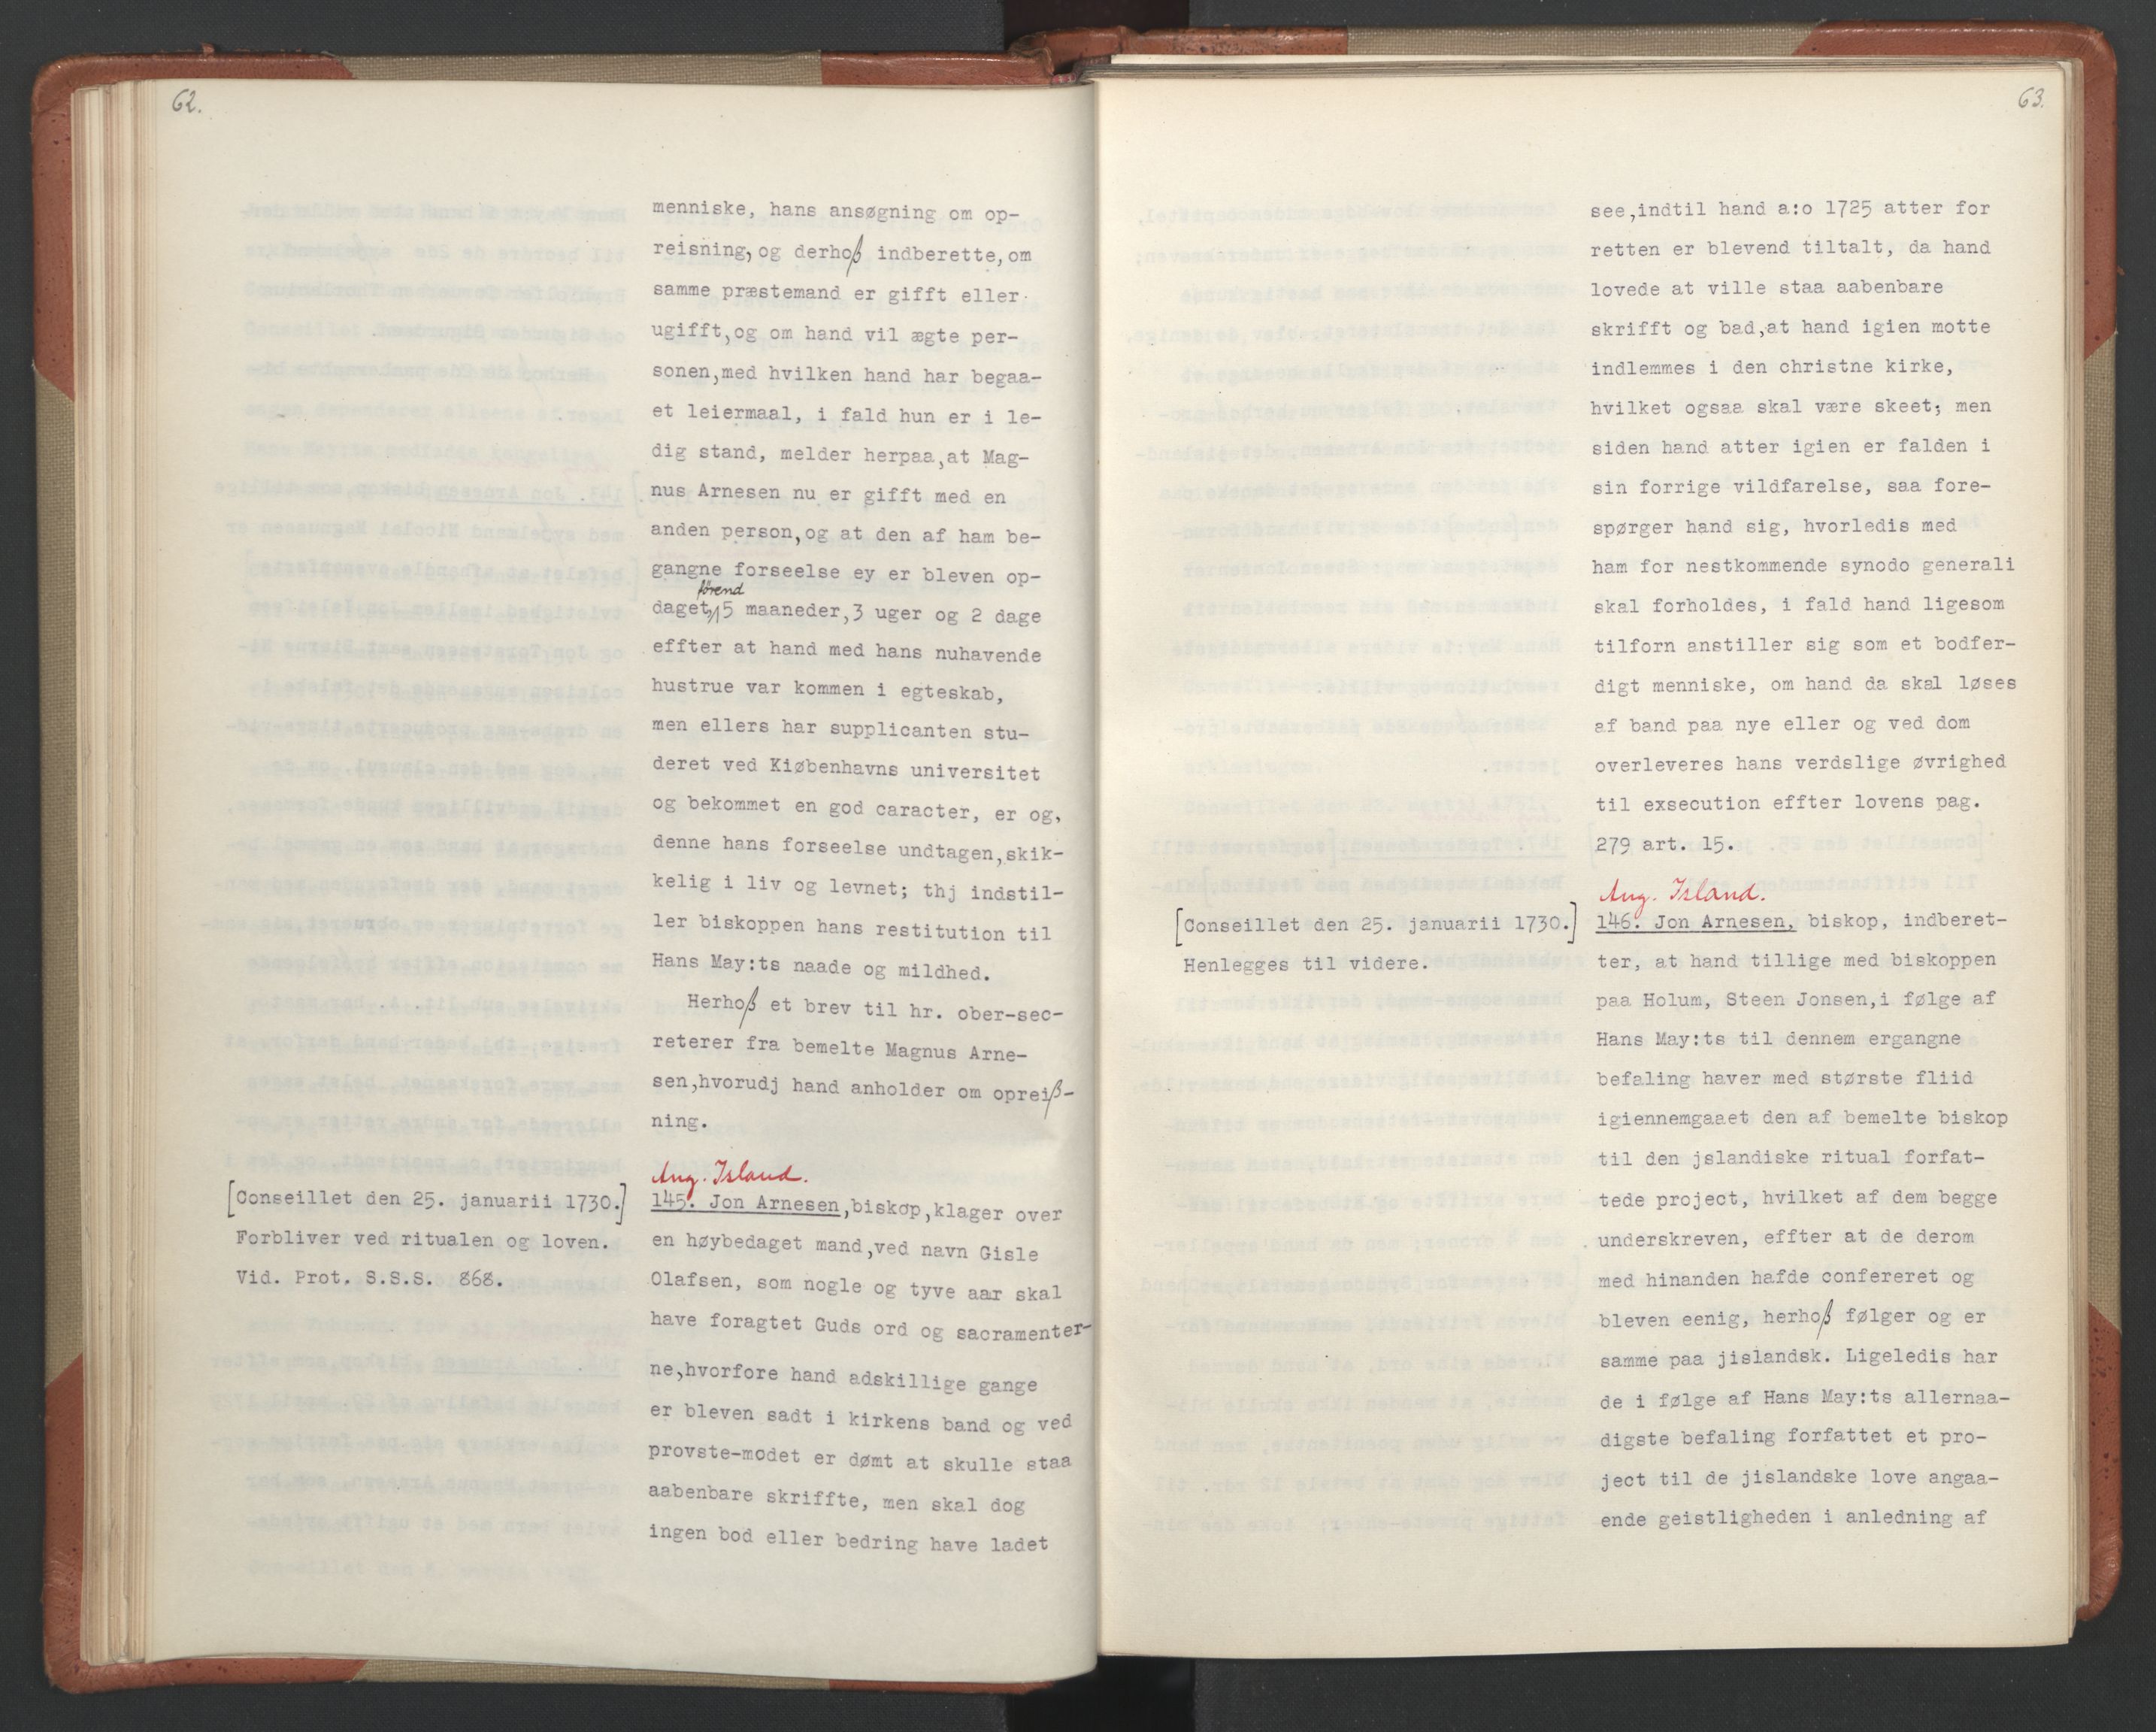 62.
menniske, hans ansøgning om op-
reisning, og derhoß indberette, om
samme præstemand er gifft eller
ugifft, og om hand vil ægte per-
sonen, med hvilken hand har begaa-
et leiermaal, i fald hun er i le-
dig stand, melder herpaa, at Mag-
nus Arnesen nu er gifft med en
anden person, og at den af ham be-
gangne forseelse ey er bleven op-
førend
daget, 5 maaneder, 3 uger og 2 dage
effter at hand med hans nuhavende
hustrue var kommen i egteskab,
men ellers har supplicanten stu-
deret ved Kiøbenhavns universitet
og bekommet en god caracter, er og,
denne hans forseelse undtagen, skik-
kelig i liv og levnet; thj indstil-
ler biskoppen hans restitution til
Hans May:ts naade og mildhed.
Herhoß et brev til hr. ober-sec-
reterer fra bemelte Magnus Arne-
sen, hvorudj hand anholder om opreiß-
ning.
Ang. Island.
[Conseillet den 25. januarii 1730.]
Forbliver ved ritualen og loven.
Vid. Prot. S.S.S. 868.
145. Jon Arnesen, biskop, klager over
en høybedaget mand, ved navn Gisle
Olafsen, som nogle og tyve aar skal
have foragtet Guds ord og sacramenter-
ne, hvorfore hand adskillige gange
er bleven sadt i kirkens band og ved
provste-modet er dømt at skulle staa
aabenbare skriffte, men skal dog
ingen bod eller bedring have ladet
63.
see, indtil hand a:o 1725 atter for
retten er blevend tiltalt, da hand
lovede at ville staa aabenbare
skrifft og bad, at hand igien motte
indlemmes i den christne kirke,
hvilket ogsaa skal være skeet; men
siden hand atter igien er falden i
sin forrige vildfarelse, saa fore-
spørger hand sig, hvorledis med
ham for nestkommende synodo generali
skal forholdes, i fald hand ligesom
tilforn anstiller sig som et bodfer-
digt menniske, om hand da skal løses
af band paa nye eller og ved dom
overleveres hans verdslige øvrighed
til exsecution effter lovens pag.
279 art. 15.
Ang. Island.
[Conseillet den 25. januarii 1730.]
Henlegges til videre.
146. Jon Arnesen, biskop, indberet-
ter, at hand tillige med biskoppen
paa Holum, Steen Jonsen, i følge af
Hans May:ts til dennem ergangne
befaling haver med største fliid
igiennemgaaet den af bemelte biskop
til den jslandiske ritual forfat-
tede project, hvilket af dem begge
underskreven, effter at de derom
med hinanden hafde confereret og
bleven eenig, herhoß følger og er
samme paa jislandsk. Ligeledis har
de i følge af Hans May:ts allernaa-
digste befaling forfattet et pro-
ject til de jislandske love angaa-
ende geistligheden i anledning af